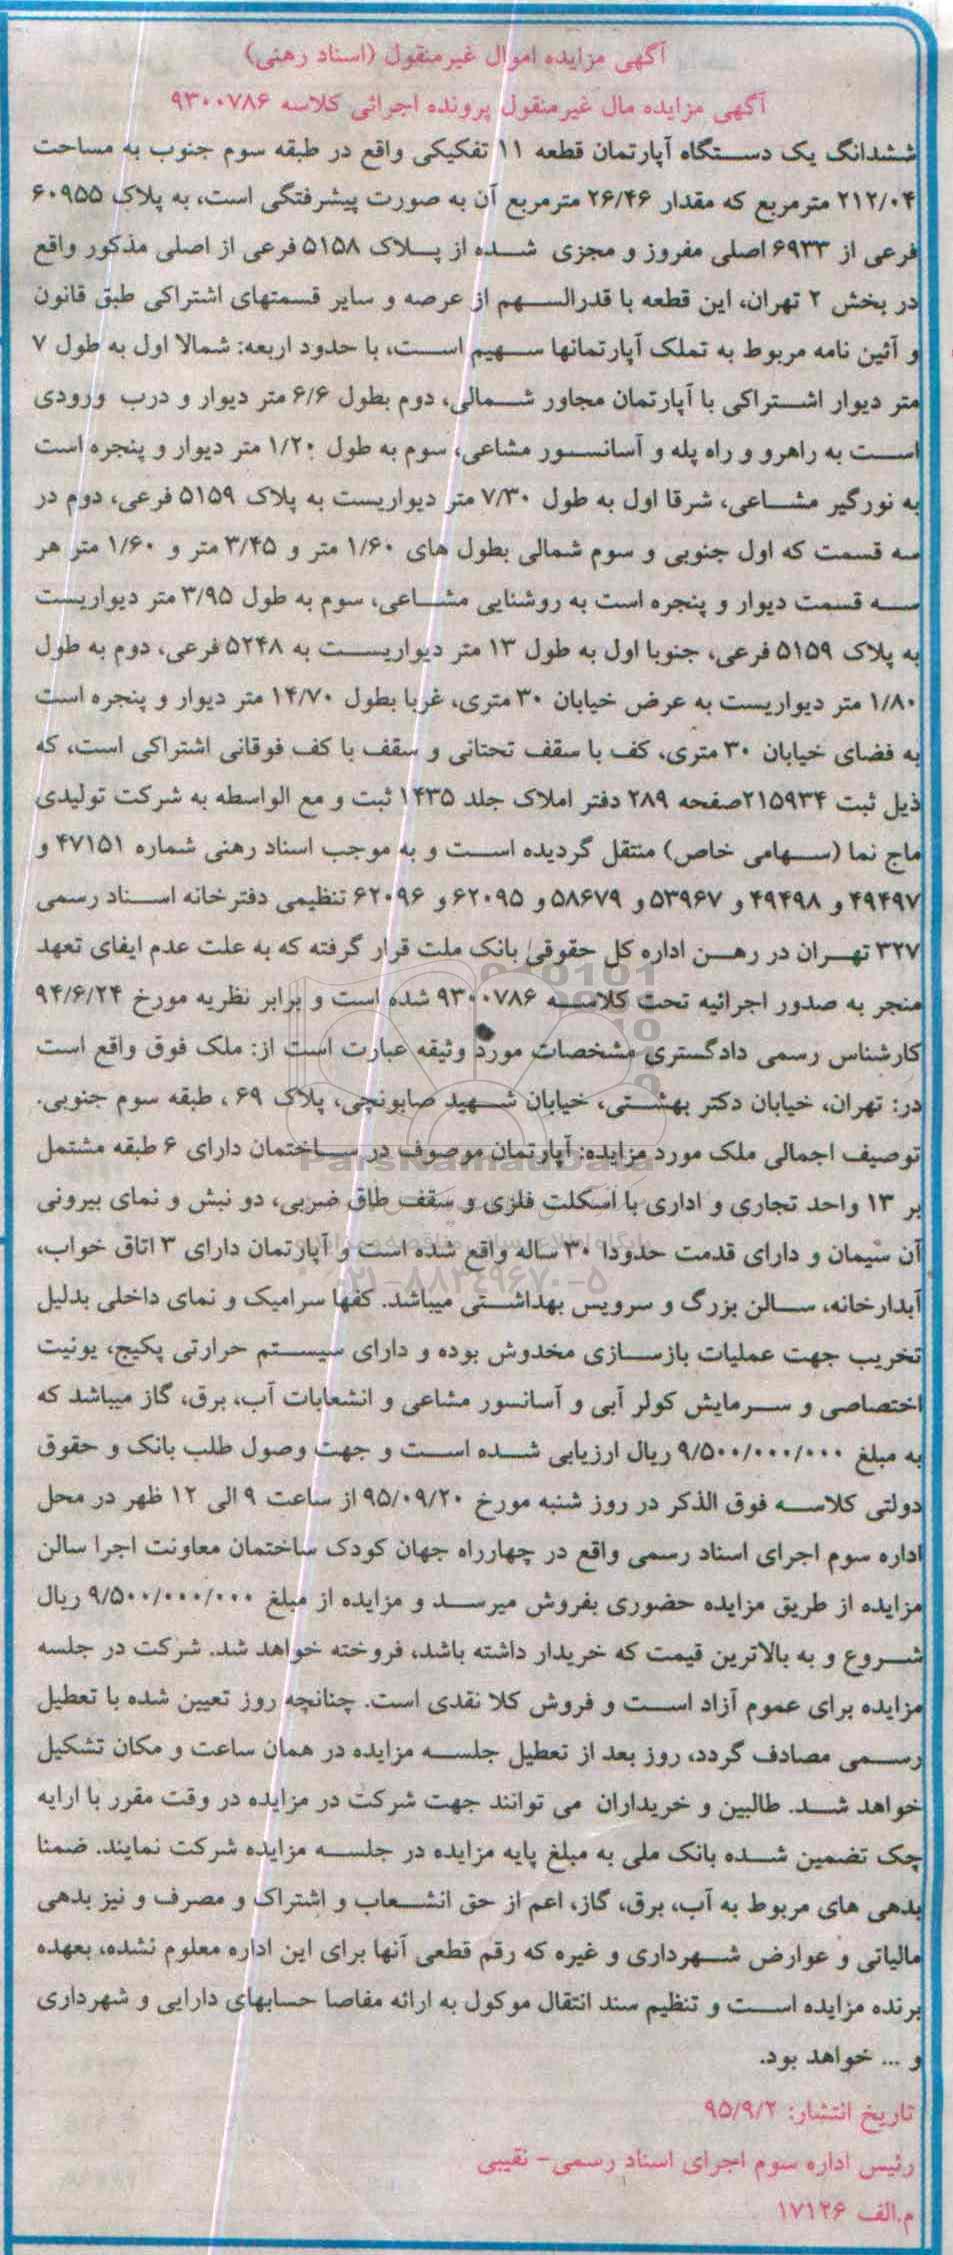 آگهی مزایده اموال غیرمنقول (اسناد رهنی)
آگهی مزایده مال غیرمنقول پرونده اجرائی کلاسه ۹۳۰۰۷۸۶
ششدانگ یک دستگاه آپارتمان قطعه ۱۱ تفکیکی واقع در طبقه سوم جنوب به مساحت
۲۱۲/۰۴ مترمربع که مقدار ۲۶/۴۶ مترمربع آن به صورت پیشرفتگی است، به پلاک ۶۰۹۵۵
فرعی از ۶۹۳۳ اصلی مفروز و مجزی شده از پلاک ۵۱۵۸ فرعی از اصلی مذکور واقع
در بخش ۲ تهران، این قطعه با قدرالسهم از عرصه و سایر قسمتهای اشتراکی طبق قانون
و آئین نامه مربوط به تملک آپارتمانها سهیم است، با حدود اربعه: شمالا اول به طول ۷
متر دیوار اشتراکی با آپارتمان مجاور شمالی، دوم بطول ۶/۶ متر دیوار و درب ورودی
است به راهرو و راه پله و آسانسور مشاعی، سوم به طول ۱/۲۰ متر دیوار و پنجره است
به نورگیر مشاعی، شرقا اول به طول ۷/۳۰ متر دیواریست به پلاک ۵۱۵۹ فرعی، دوم در
سه قسمت که اول جنوبی و سوم شمالی بطول های ۱/۶۰ متر و ۳/۴۵ متر و ۱/۶۰ متر هر
سه قسمت دیوار و پنجره است به روشنایی مشاعی، سوم به طول ۳/۹۵ متر دیواریست
به پلاک ۵۱۵۹ فرعی، جنوبا اول به طول ۱۳ متر دیواریست به ۵۲۴۸ فرعی، دوم به طول
۱/۸۰ متر دیواریست به عرض خیابان ۳۰ متری، غربا بطول ۱۴/۷۰ متر دیوار و پنجره است
به فضای خیابان ۳۰ متری، کف با سقف تحتانی و سقف با کف فوقانی اشتراکی است، که
ذیل ثبت ۲۱۵۹۳۴صفحه ۲۸۹ دفتر املاک جلد ۱۴۳۵ ثبت و مع الواسطه به شرکت تولیدی
ماج نما (سهامی خاص) منتقل گردیده است و به موجب اسناد رهنی شماره ۴۷۱۵۱ و
۴۹۴۹۷ و ۴۹۴۹۸ و ۵۳۹۶۷ و ۵۸۶۷۹ و ۶۲۰۹۵ و ۶۲۰۹۶ تنظیمی دفترخانه اسناد رسمی
۳۲۷ تهران در رهن اداره کل حقوقی بانک ملت قرار گرفته که به علت عدم ایفای تعهد
منجر به صدور اجرائیه تحت کلاسه ۹۳۰۰۷۸۶ شده است و برابر نظریه مورخ ۹۴/۶/۲۴
کارشناس رسمی دادگستری مشخصات مورد وثیقه عبارت است از: ملک فوق واقع است
در: تهران، خیابان دکتر بهشتی، خیابان شهید صابونچی، پلاک ۶۹ ، طبقه سوم جنوبی.
توصیف اجمالی ملک مورد مزایده: آپارتمان موصوف در ساختمان دارای ۶ طبقه مشتمل
بر ۱۳ واحد تجاری و اداری با اسکلت فلزی و سقف طاق ضربی، دو نبش و نمای بیرونی
آن سیمان و دارای قدمت حدودا ۳۰ ساله واقع شده است و آپارتمان دارای ۳ اتاق خواب،
آبدارخانه، سالن بزرگ و سرویس بهداشتی میباشد. کفها سرامیک و نمای داخلی بدلیل
تخریب جهت عملیات بازسازی مخدوش بوده و دارای سیستم حرارتی پکیج، یونیت
اختصاصی و سرمایش کولر آبی و آسانسور مشاعی و انشعابات آب، برق، گاز میباشد که
به مبلغ ۹/۵۰۰/۰۰۰/۰۰۰ ریال ارزیابی شده است و جهت وصول طلب بانک و حقوق
دولتی کلاسه فوق الذکر در روز شنبه مورخ ۹۵/۰۹/۲۰ از ساعت ۹ الی ۱۲ ظهر در محل
اداره سوم اجرای اسناد رسمی واقع در چهارراه جهان کودک ساختمان معاونت اجرا سالن
مزایده از طریق مزایده حضوری بفروش میرسد و مزایده از مبلغ ۹/۵۰۰/۰۰۰/۰۰۰ ریال
شروع و به بالاترین قیمت که خریدار داشته باشد، فروخته خواهد شد. شرکت در جلسه
مزایده برای عموم آزاد است و فروش کلا نقدی است. چنانچه روز تعیین شده با تعطیل
رسمی مصادف گردد، روز بعد از تعطیل جلسه مزایده در همان ساعت و مکان تشکیل
خواهد شد. طالبین و خریداران می توانند جهت شرکت در مزایده در وقت مقرر با ارایه
چک تضمین شده بانک ملی به مبلغ پایه مزایده در جلسه مزایده شرکت نمایند. ضمنا
بدهی های مربوط به آب، برق، گاز، اعم از حق انشعاب و اشتراک و مصرف و نیز بدهی
مالیاتی و عوارض شهرداری و غیره که رقم قطعی آنها برای این اداره معلوم نشده، بعهده
برنده مزایده است و تنظیم سند انتقال موکول به ارائه مفاصا حسابهای دارایی و شهرداری
و ... خواهد بود.
تاریخ انتشار: ۹۵/۹/۲
رئیس اداره سوم اجرای اسناد رسمی- نقیبی
م.الف ۱۷۱۲۶
ParsNamadData
۰۲۱-۸۸۳۴۹۶۷۰-۵